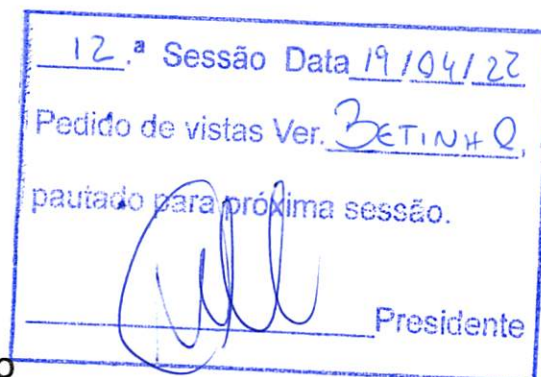 12.ª Sessão Data 19/04/22
Pedido de vistas Ver. BETINHO,
pautado para próxima sessão.
Presidente
o